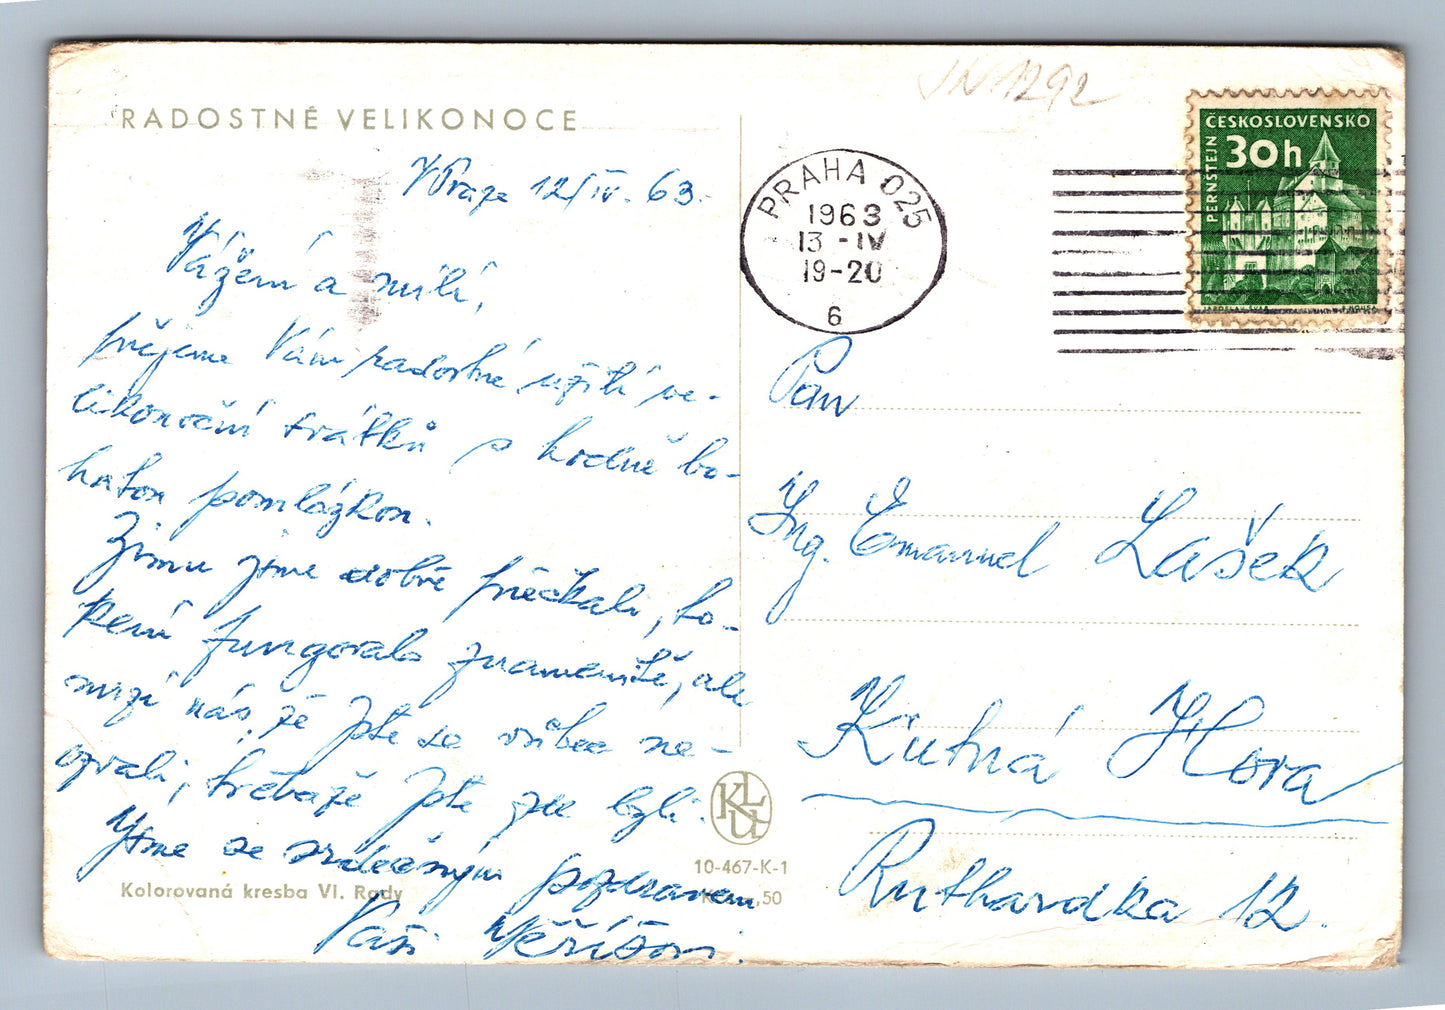 JN 1292
RADOSTNÉ VELIKONOCE
V Praze 12/IV. 63.
Vážení a milí,
přejeme Vám radostné užití ve-
likonoční svátků s hodně bo-
hatou pomlázkou.
Zimu jsme dobře přečkali, to-
pení fungovalo znamenitě, ale
mrzí nás, že jste se vůbec ne-
ozvali, třebaže jste zde byli.
Jsme se srdečným pozdravem
Vaši
Kolorovaná kresba Vl. Rady
KLU
10-467-K-1
,50
PRAHA 025
1963
13 -IV
19-20
6
ČESKOSLOVENSKO
30h
PERNŠTEJN
Pan
Ing. Emanuel Lašek
Kutná Hora
Ruthardka 12.